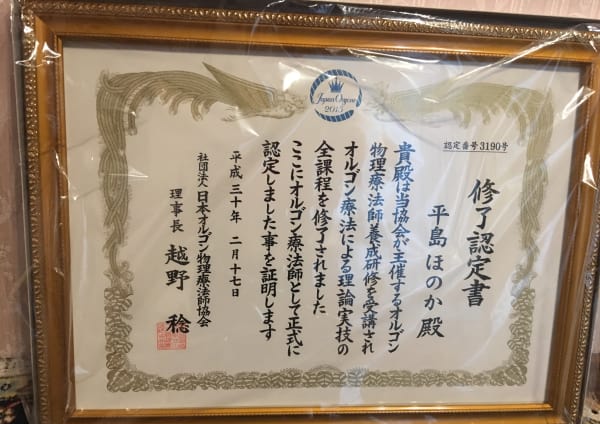 Japan Orgone
2015
認定番号3190号
修了認定書
平島ほのか殿
貴殿は当協会が主催するオルゴン
物理療法師養成研修を受講され
オルゴン療法による理論実技の
全課程を修了されました
ここにオルゴン療法師として正式に
認定しました事を証明します
平成三十年 二月十七日
社団法人日本オルゴン物理療法師協会
理事長 越野 稔